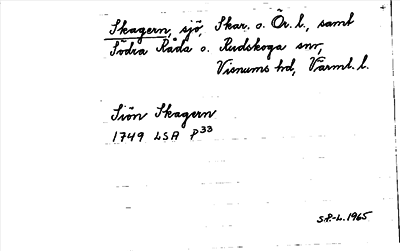 Skagern, sjö, Skar. o. Ör. l., samt
Södra Råda o. Rudskoga snr,
Visnums hd, Värml. l.
Siön Skagern
1749 LSA P33
S.P.-L. 1965